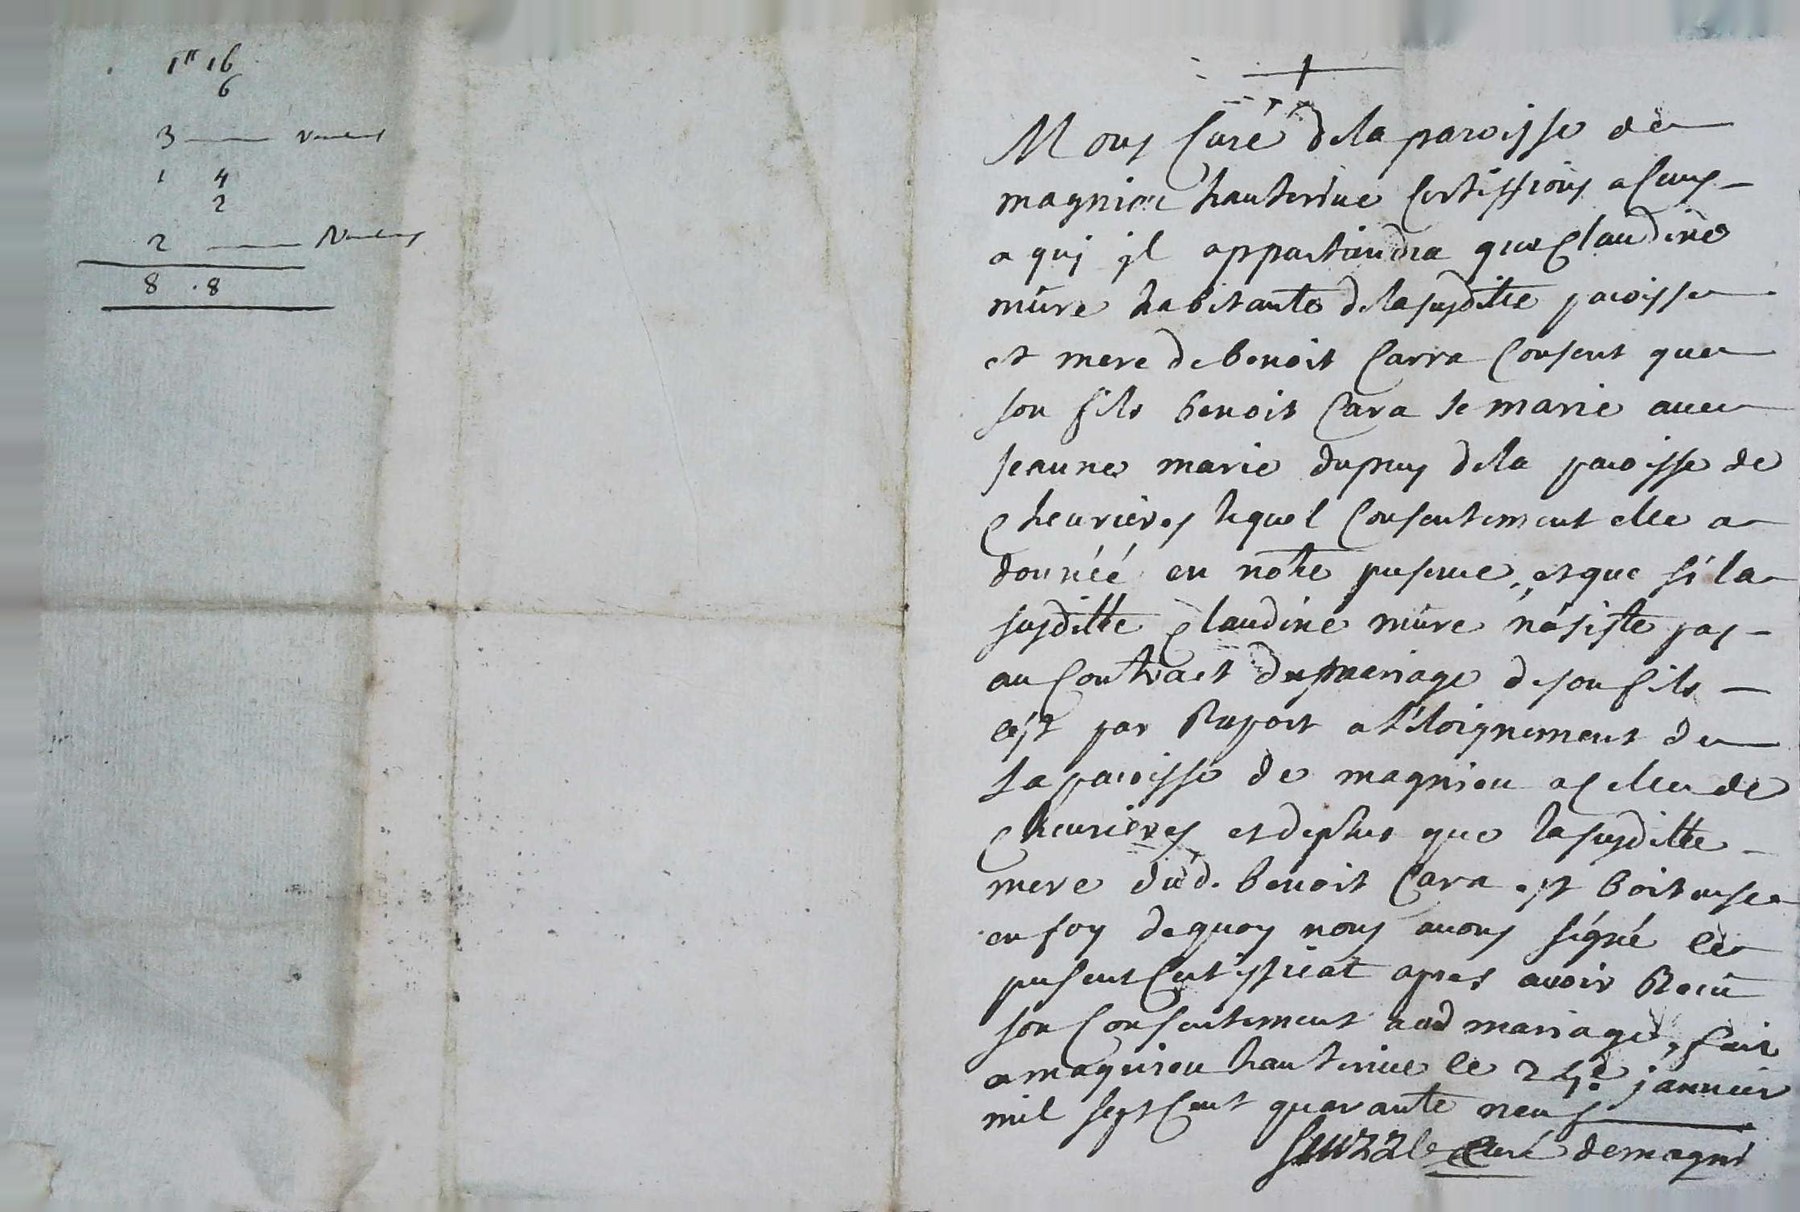 1" 16
6
3
1 4
2
2
8 . 8
Nous Curé de la paroisse de
magnieu hauterive Certiffions a Ceus
a quj jl appartiendra que Claudine
mûre habitante de lasusditte paroisse
et mere de benoit Carra Consent que
son fils benoit Cara se marie avec
jeanne marie dupuy dela paroisse de
Chevrieres lequel Consentement elle a
donnéé en notre presence, et que si la
susditte Claudine mûre n'asiste pas
au Contract de mariage de son fils
c'est par Raport a l'éloignement de
la paroisse de magnieu a Celle de
Chevrieres et deplus que la susditte
mere dud. benoit Cara est boiteuse
en foy dequoy nous avons signé le
present Certifficat apres avoir Receu
son Consentement aud mariage, fait
a magnieu hauterive le janvier
mil sept Cent quarante neuf
le Curé de magni